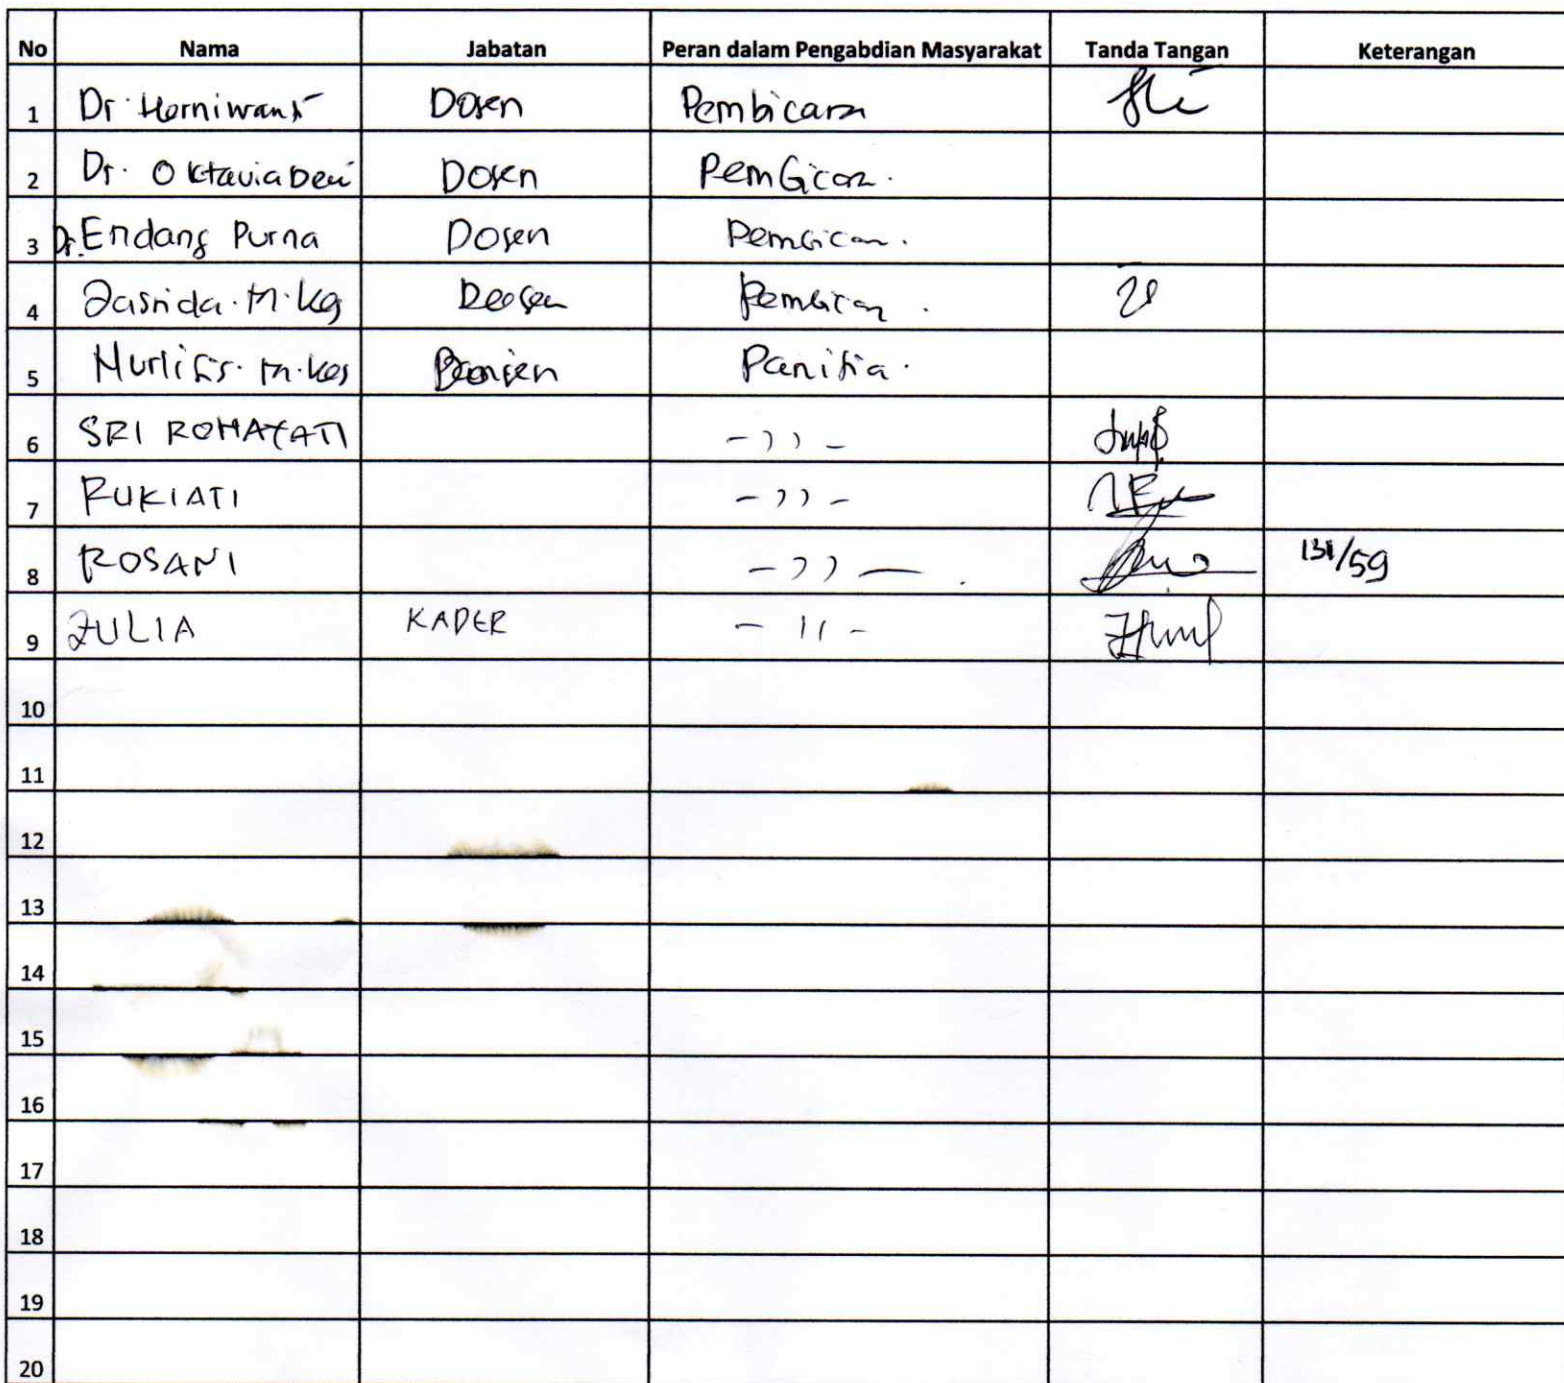 No Nama Jabatan Peran dalam Pengabdian Masyarakat Tanda Tangan Keterangan
1 Dr. Herniwanti Dosen Pembicara
2 Dr. Oktavia Dewi Dosen Pembicara.
3 Dr. Endang Purna Dosen Pembicara.
4 Jasrida. M. Kes Dosen Pembicara.
5 Nurlisis. M. Kes Dosen Panitia.
6 SRI ROHAYATI - )) -
7 RUKIATI - )) -
8 ROSANI - )) - 131/59
9 ZULIA KADER - 11 -
10
11
12
13
14
15
16
17
18
19
20